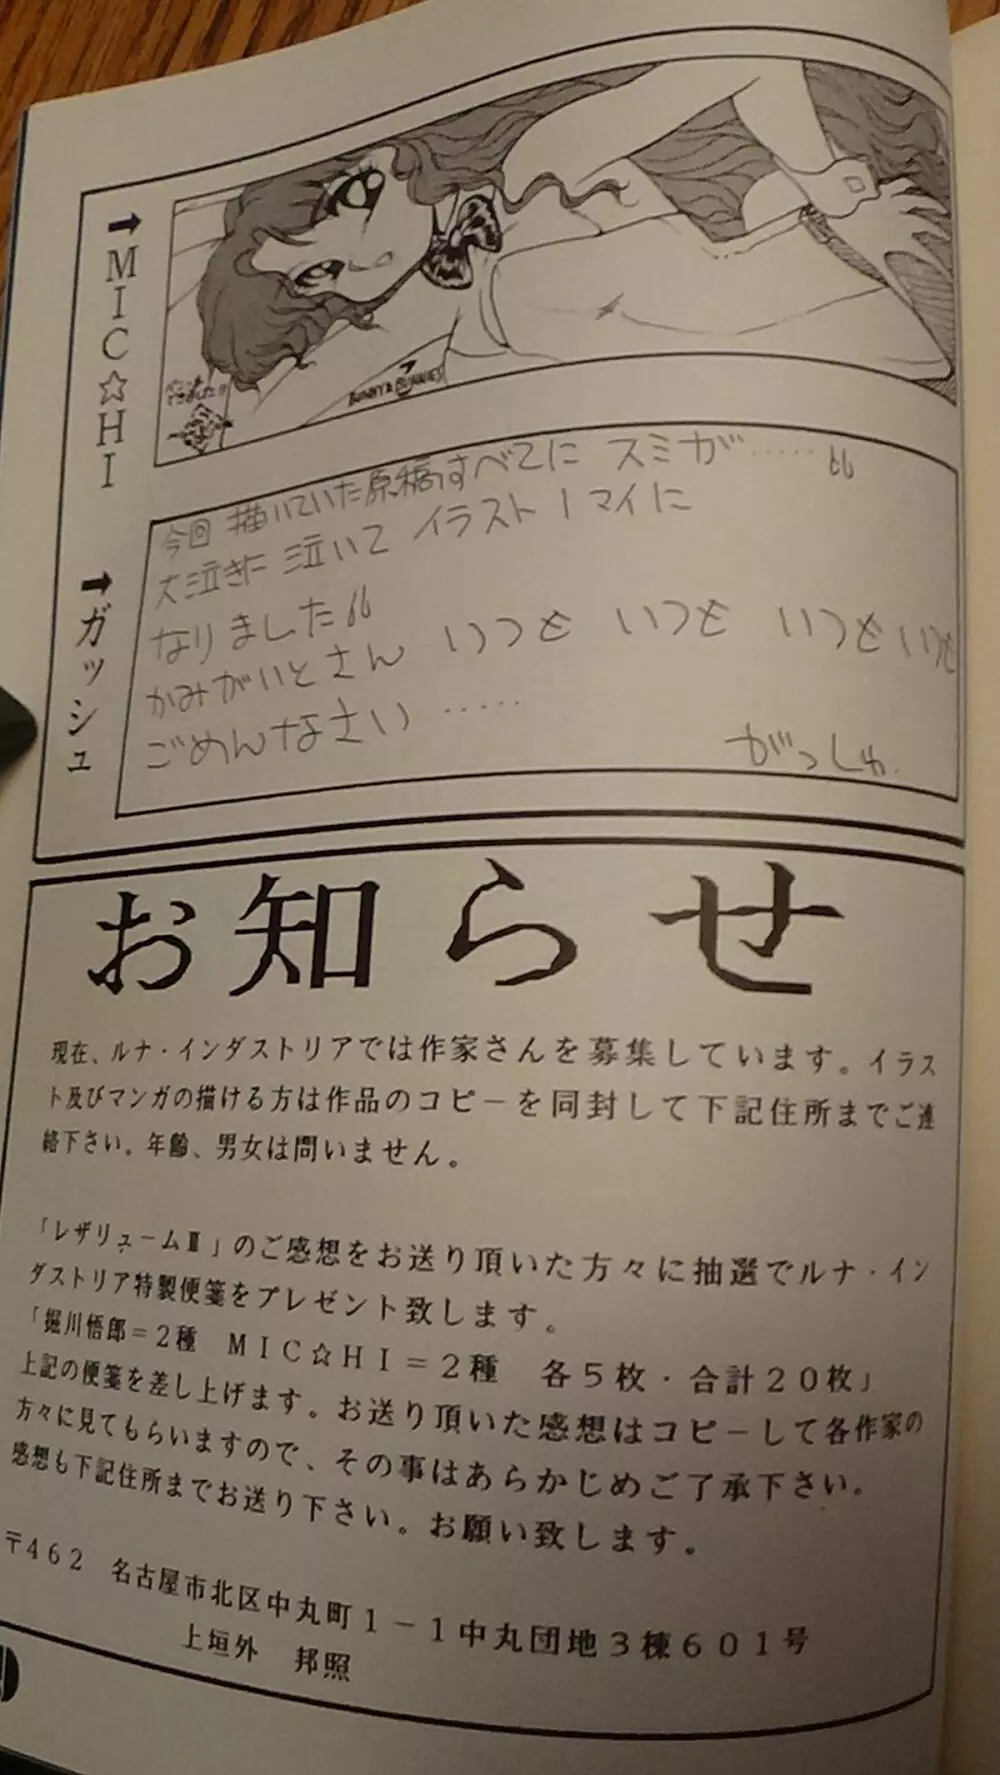 ➡MIC☆HI
BUNNY & BUNNIES
➡ガッシュ
今回 描いていた原稿すべてに スミが……
大泣きに 泣いて イラスト1マイに
なりました
かみがいとさん いつも いつも いつも いつも
ごめんなさい ……
がっしゅ.
お知らせ
現在、ルナ・インダストリアでは作家さんを募集しています。イラス
ト及びマンガの描ける方は作品のコピーを同封して下記住所までご連
絡下さい。年齢、男女は問いません。
「レザリュームⅢ」のご感想をお送り頂いた方々に抽選でルナ・イン
ダストリア特製便箋をプレゼント致します。
「堀川悟郎=2種 MIC☆HI=2種 各5枚・合計20枚」
上記の便箋を差し上げます。お送り頂いた感想はコピーして各作家の
方々に見てもらいますので、その事はあらかじめご了承下さい。
感想も下記住所までお送り下さい。お願い致します。
〒462 名古屋市北区中丸町1-1中丸団地3棟601号
上垣外 邦照